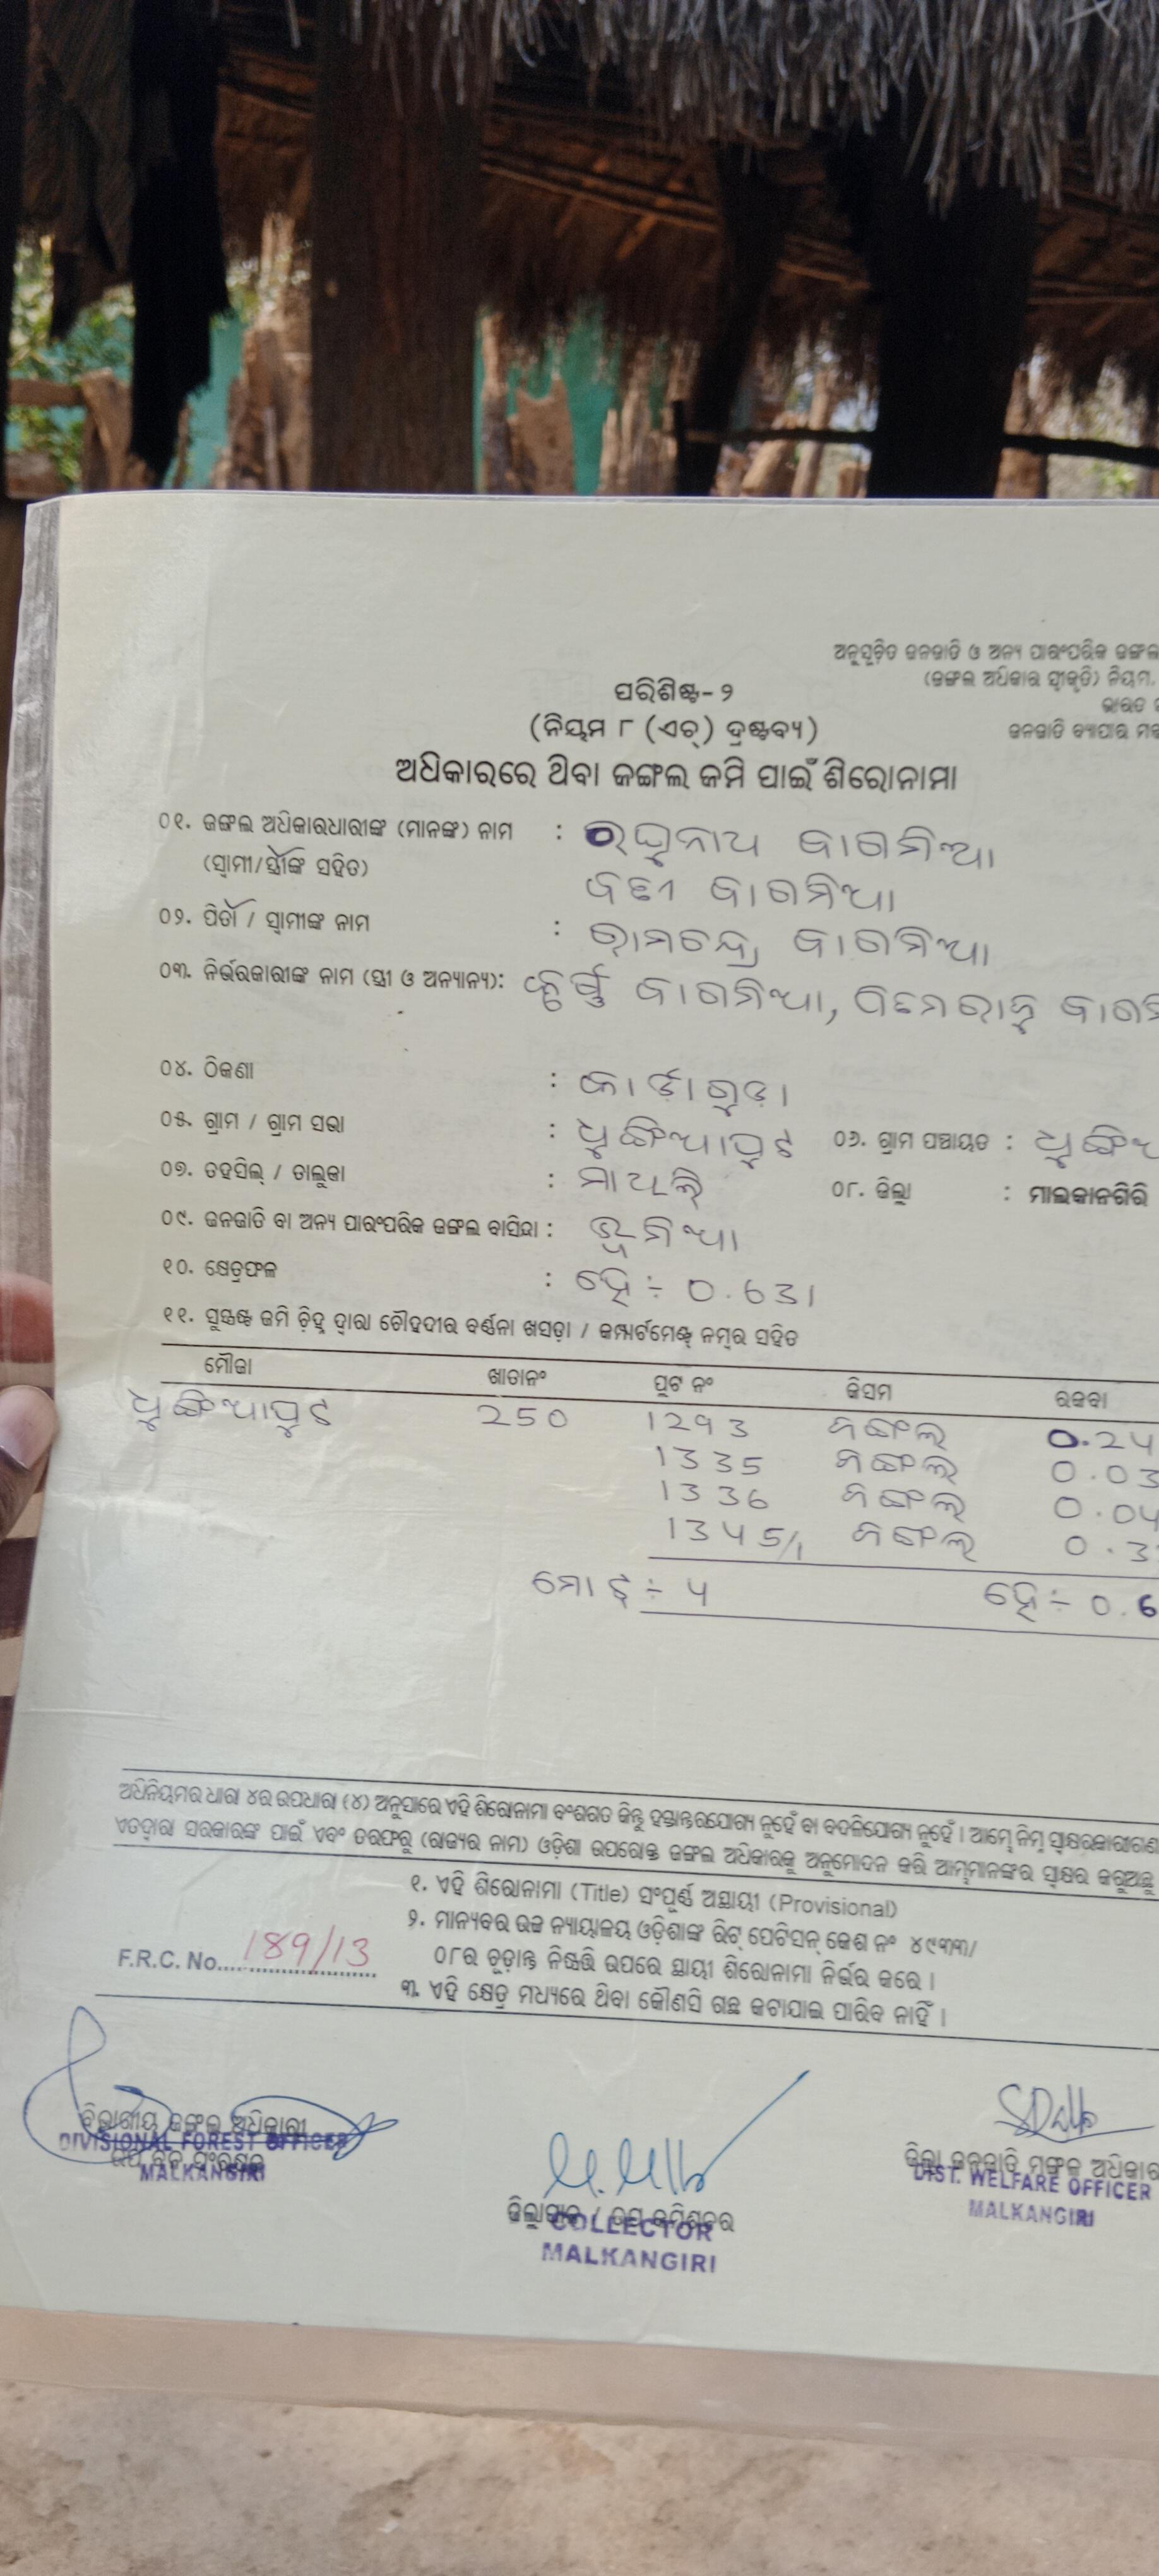 ଅନୁସୂଚିତ ଜନଜାତି ଓ ଅନ୍ୟ ପାରଂପରିକ ଜଙ୍ଗଲ
(ଜଙ୍ଗଲ ଅଧିକାର ସ୍ୱୀକୃତି) ନିୟମ,
ଭାରତ
ଜନଜାତି ବ୍ୟାପାର
ପରିଶିଷ୍ଟ-୨
(ନିୟମ ୮ (ଏଚ୍) ଦ୍ରଷ୍ଟବ୍ୟ)
ଅଧିକାରରେ ଥିବା ଜଙ୍ଗଲ ଜମି ପାଇଁ ଶିରୋନାମା
୦୧. ଜଙ୍ଗଲ ଅଧିକାରଧାରୀଙ୍କ (ମାନଙ୍କ) ନାମ : ରଘୁନାଥ ବାଗବିଆ
(ସ୍ୱାମୀ/ସ୍ତ୍ରୀଙ୍କ ସହିତ) ବାଗବିଆ
୦୨. ପିତା / ସ୍ୱାମୀଙ୍କ ନାମ : ରାମଚନ୍ଦ୍ର ବାଗବିଆ
୦୩. ନିର୍ଭରକାରୀଙ୍କ ନାମ (ସ୍ତ୍ରୀ ଓ ଅନ୍ୟାନ୍ୟ): ବାଗବିଆ,
୦୪. ଠିକଣା :
୦୫. ଗ୍ରାମ / ଗ୍ରାମ ସଭା : ଧୁଙ୍ଗିଆପୁଟ ୦୬. ଗ୍ରାମ ପଞ୍ଚାୟତ :
୦୭. ତହସିଲ୍ / ତାଲୁକା : ମାଥିଲି ୦୮. ଜିଲ୍ଲା : ମାଲକାନଗିରି
୦୯. ଜନଜାତି ବା ଅନ୍ୟ ପାରଂପରିକ ଜଙ୍ଗଲ ବାସିନ୍ଦା : ଭୂମିଆ
୧୦. କ୍ଷେତ୍ରଫଳ : ହେ÷ 0.631
୧୧. ସୁସ୍ପଷ୍ଟ ଜମି ଚିହ୍ନ ଦ୍ୱାରା ଚୌହଦୀର ବର୍ଣ୍ଣନା ଖସଡ଼ା / କମ୍ପାର୍ଟମେଣ୍ଟ୍ ନମ୍ବର ସହିତ
ମୌଜା ଖାତାନଂ ପ୍ଲଟ ନଂ କିସମ ରକବା
ଧୁଙ୍ଗିଆପୁଟ 250 1293 ଜଙ୍ଗଲ 0.24
1335 ଜଙ୍ଗଲ 0.03
1336 ଜଙ୍ଗଲ 0.04
1345/1 ଜଙ୍ଗଲ 0.3
ମୋଟ÷ 4 ହେ÷ 0.6
ଅଧିନିୟମର ଧାରା ୪ର ଉପଧାରା (୪) ଅନୁସାରେ ଏହି ଶିରୋନାମା ବଂଶଗତ କିନ୍ତୁ ହସ୍ତାନ୍ତରଯୋଗ୍ୟ ନୁହେଁ ବା ବଦଳିଯୋଗ୍ୟ ନୁହେଁ । ଆମ୍ଭେ ନିମ୍ନ ସ୍ୱାକ୍ଷରକାରୀଗଣ
ଏତଦ୍ୱାରା ସରକାରଙ୍କ ପାଇଁ ଏବଂ ତରଫରୁ (ରାଜ୍ୟର ନାମ) ଓଡ଼ିଶା ଉପରୋକ୍ତ ଜଙ୍ଗଲ ଅଧିକାରକୁ ଅନୁମୋଦନ କରି ଆମ୍ଭମାନଙ୍କର ସ୍ୱାକ୍ଷର କରୁଅଛୁ
୧. ଏହି ଶିରୋନାମା (Title) ସଂପୂର୍ଣ୍ଣ ଅସ୍ଥାୟୀ (Provisional)
୨. ମାନ୍ୟବର ଉଚ୍ଚ ନ୍ୟାୟାଳୟ ଓଡ଼ିଶାଙ୍କ ରିଟ୍ ପେଟିସନ୍ କେଶ ନଂ ୪୯୩୩/
୦୮ର ଚୂଡ଼ାନ୍ତ ନିଷ୍ପତ୍ତି ଉପରେ ସ୍ଥାୟୀ ଶିରୋନାମା ନିର୍ଭର କରେ ।
F.R.C. No. 189/13
୩. ଏହି କ୍ଷେତ୍ର ମଧ୍ୟରେ ଥିବା କୌଣସି ଗଛ କଟାଯାଇ ପାରିବ ନାହିଁ ।
ବିଭାଗୀୟ ଜଙ୍ଗଲ ଅଧିକାରୀ
DIVISIONAL FOREST OFFICER
MALKANGIRI
ଜିଲ୍ଲା ଜନଜାତି ମଙ୍ଗଳ ଅଧିକାର
DIST. WELFARE OFFICER
MALKANGIRI
COLLECTOR
MALKANGIRI